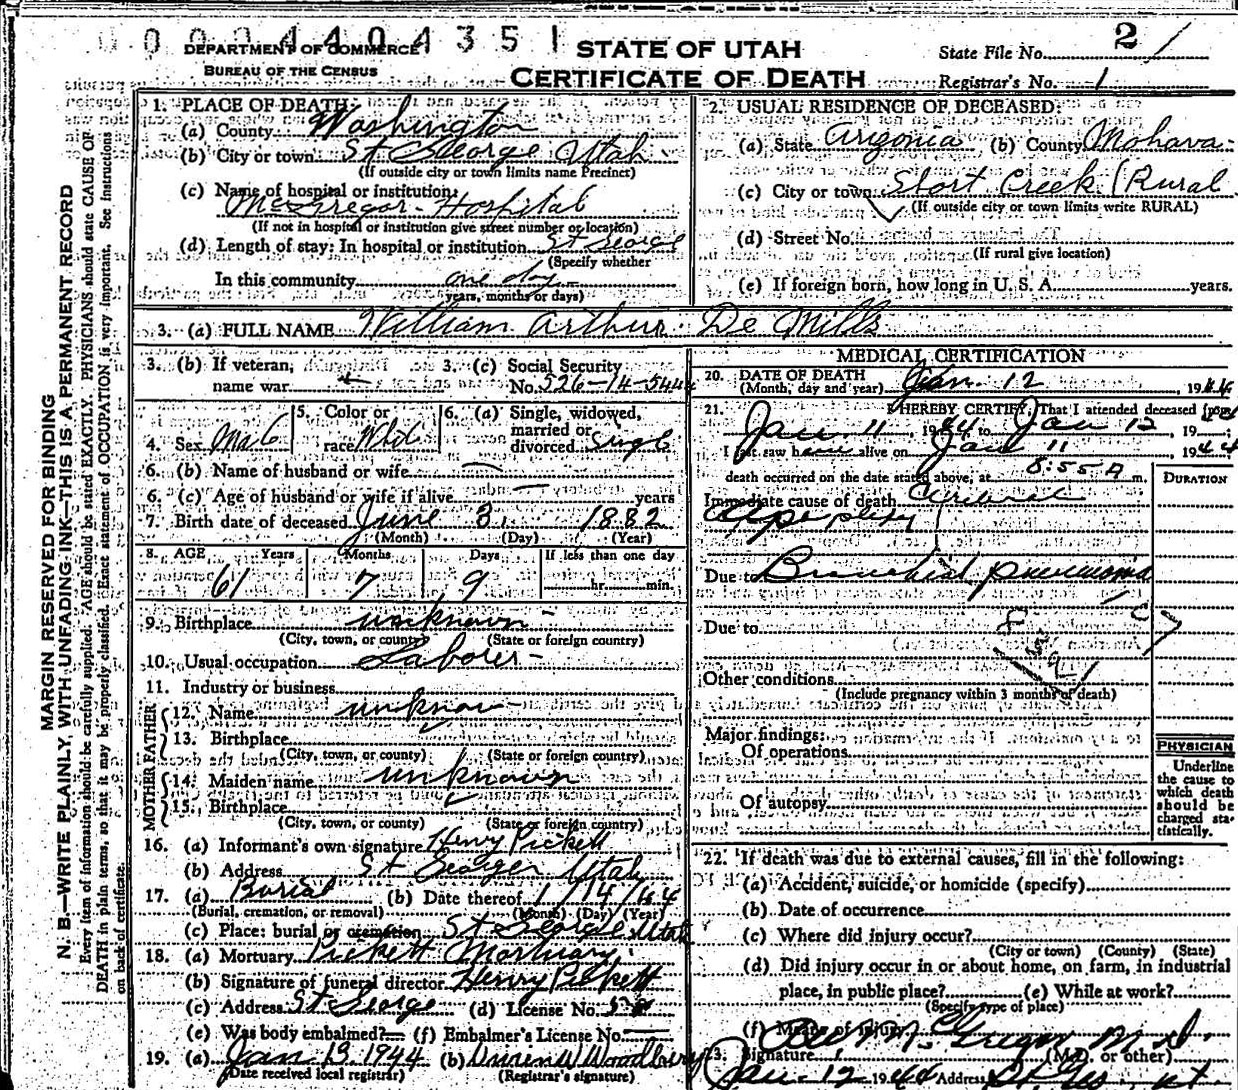 0 0 0 4 4 0 4 3 5 1
DEPARTMENT OF COMMERCE
BUREAU OF THE CENSUS
STATE OF UTAH
CERTIFICATE OF DEATH
State File No. 2
Registrar's No. 1
MARGIN RESERVED FOR BINDING
N. B.—WRITE PLAINLY, WITH UNFADING INK—THIS IS A PERMANENT RECORD
Every item of information should be carefully supplied. AGE should be stated EXACTLY. PHYSICIANS should state CAUSE OF
DEATH in plain terms, so that it may be properly classified. Exact statement of OCCUPATION is very important. See instructions
on back of certificate.
1. PLACE OF DEATH:
(a) County Washington
(b) City or town St George Utah
(If outside city or town limits name Precinct)
(c) Name of hospital or institution:
McGregor Hospital
(If not in hospital or institution give street number or location)
(d) Length of stay: In hospital or institution St George
(Specify whether
In this community one day
years, months or days)
2. USUAL RESIDENCE OF DECEASED:
(a) State Arizonia (b) County Mohava
(c) City or town Short Creek (Rural
(If outside city or town limits write RURAL)
(d) Street No.
(If rural give location)
(e) If foreign born, how long in U. S. A. years.
3. (a) FULL NAME William Arthur De Mills
3. (b) If veteran, name war
3. (c) Social Security No. 526-14-544
4. Sex Male
5. Color or race White
6. (a) Single, widowed, married or divorced Single
6. (b) Name of husband or wife
6. (c) Age of husband or wife if alive years
7. Birth date of deceased June 3, 1882
(Month) (Day) (Year)
8. AGE Years Months Days If less than one day
61 7 9 hr. min.
9. Birthplace unknown
(City, town, or county) (State or foreign country)
10. Usual occupation Laborer
11. Industry or business
FATHER
12. Name unknow
13. Birthplace
(City, town, or county) (State or foreign country)
MOTHER
14. Maiden name unknown
15. Birthplace
(City, town, or county) (State or foreign country)
16. (a) Informant's own signature Henry Pickett
(b) Address St Georger Utah
17. (a) Burial (b) Date thereof 1/14/44
(Burial, cremation, or removal) (Month) (Day) (Year)
(c) Place: burial or cremation St George Utah
18. (a) Mortuary Pickett Mortuary
(b) Signature of funeral director Henry Pickett
(c) Address St George (d) License No.
(e) Was body embalmed? (f) Embalmer's License No.
19. (a) Jan 13 1944 (b) W Woodbury
(Date received local registrar) (Registrar's signature)
MEDICAL CERTIFICATION
20. DATE OF DEATH
(Month, day and year) Jan. 12, 1944
21. I HEREBY CERTIFY, That I attended deceased from
Jan. 11, 1944 to Jan 12, 19
I last saw him alive on Jan 11, 1944
death occurred on the date stated above, at 8:55 A m.
DURATION
Immediate cause of death Cerebral
Apoplexy
Due to Bronchial pneumonia
Due to
Other conditions
(Include pregnancy within 3 months of death)
Major findings:
Of operations
Of autopsy
PHYSICIAN
Underline
the cause to
which death
should be
charged sta-
tistically.
22. If death was due to external causes, fill in the following:
(a) Accident, suicide, or homicide (specify)
(b) Date of occurrence
(c) Where did injury occur?
(City or town) (County) (State)
(d) Did injury occur in or about home, on farm, in industrial
place, in public place? (e) While at work?
(Specify type of place)
(f) Means of injury
McGregor M.D.
23. Signature (M.D. or other)
Jan. 12 1944 Address